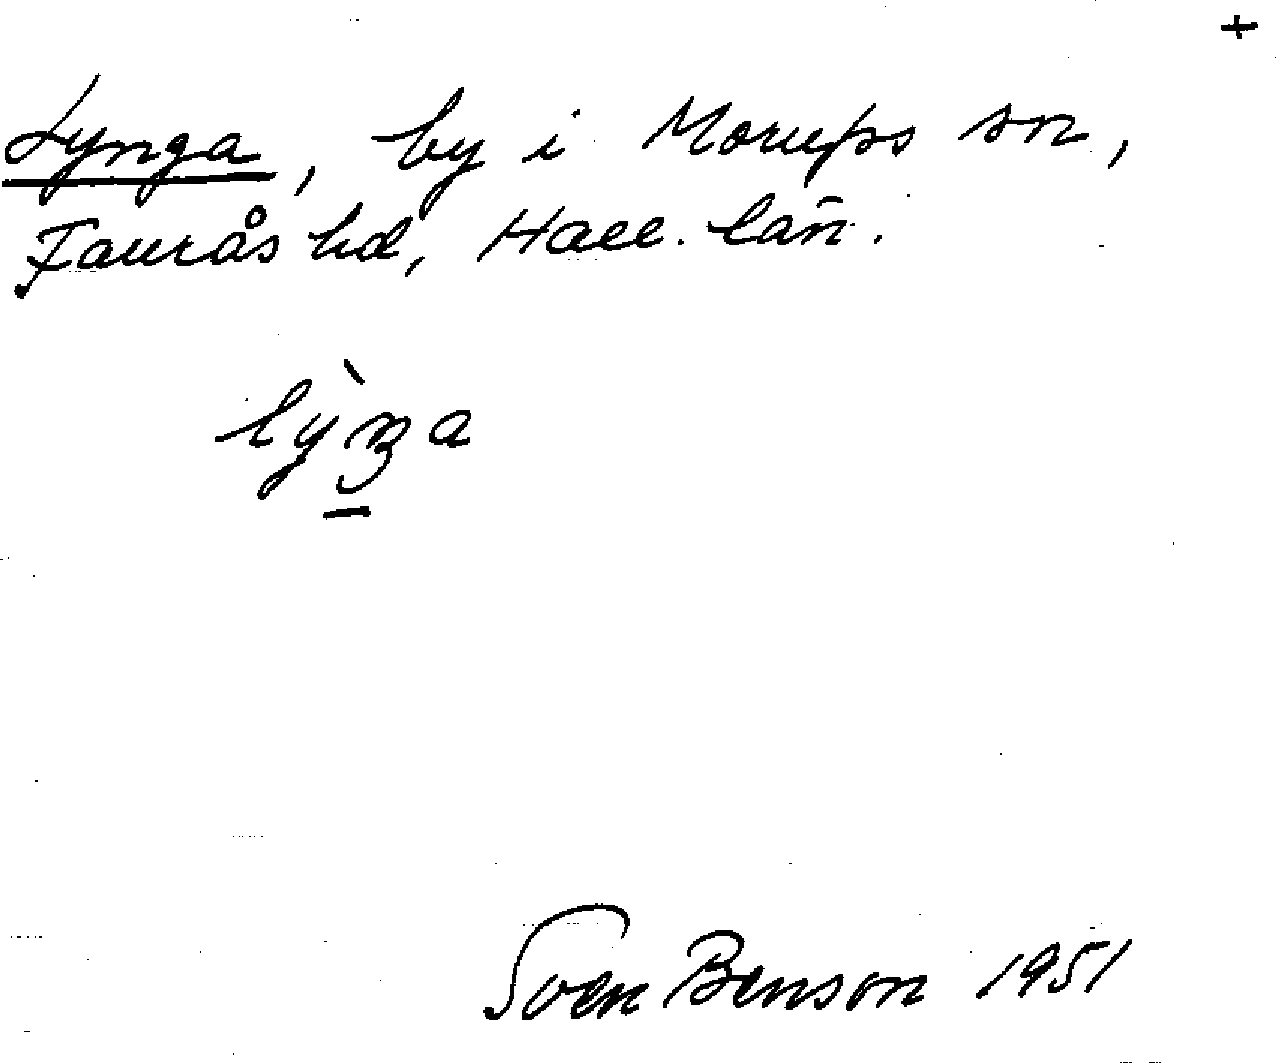 +
Lynga, by i Morups sn,
Faurås hd, Hall. län.
lỳŋa
Sven Benson 1951